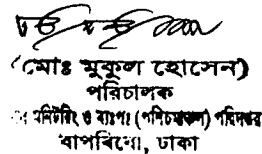 (মোঃ মুকুল হোসেন)
পরিচালক
মনিটরিং ও ব্যাপঃ (পশ্চিমাঞ্চল) পরিদপ্তর
বাপবিবো, ঢাকা